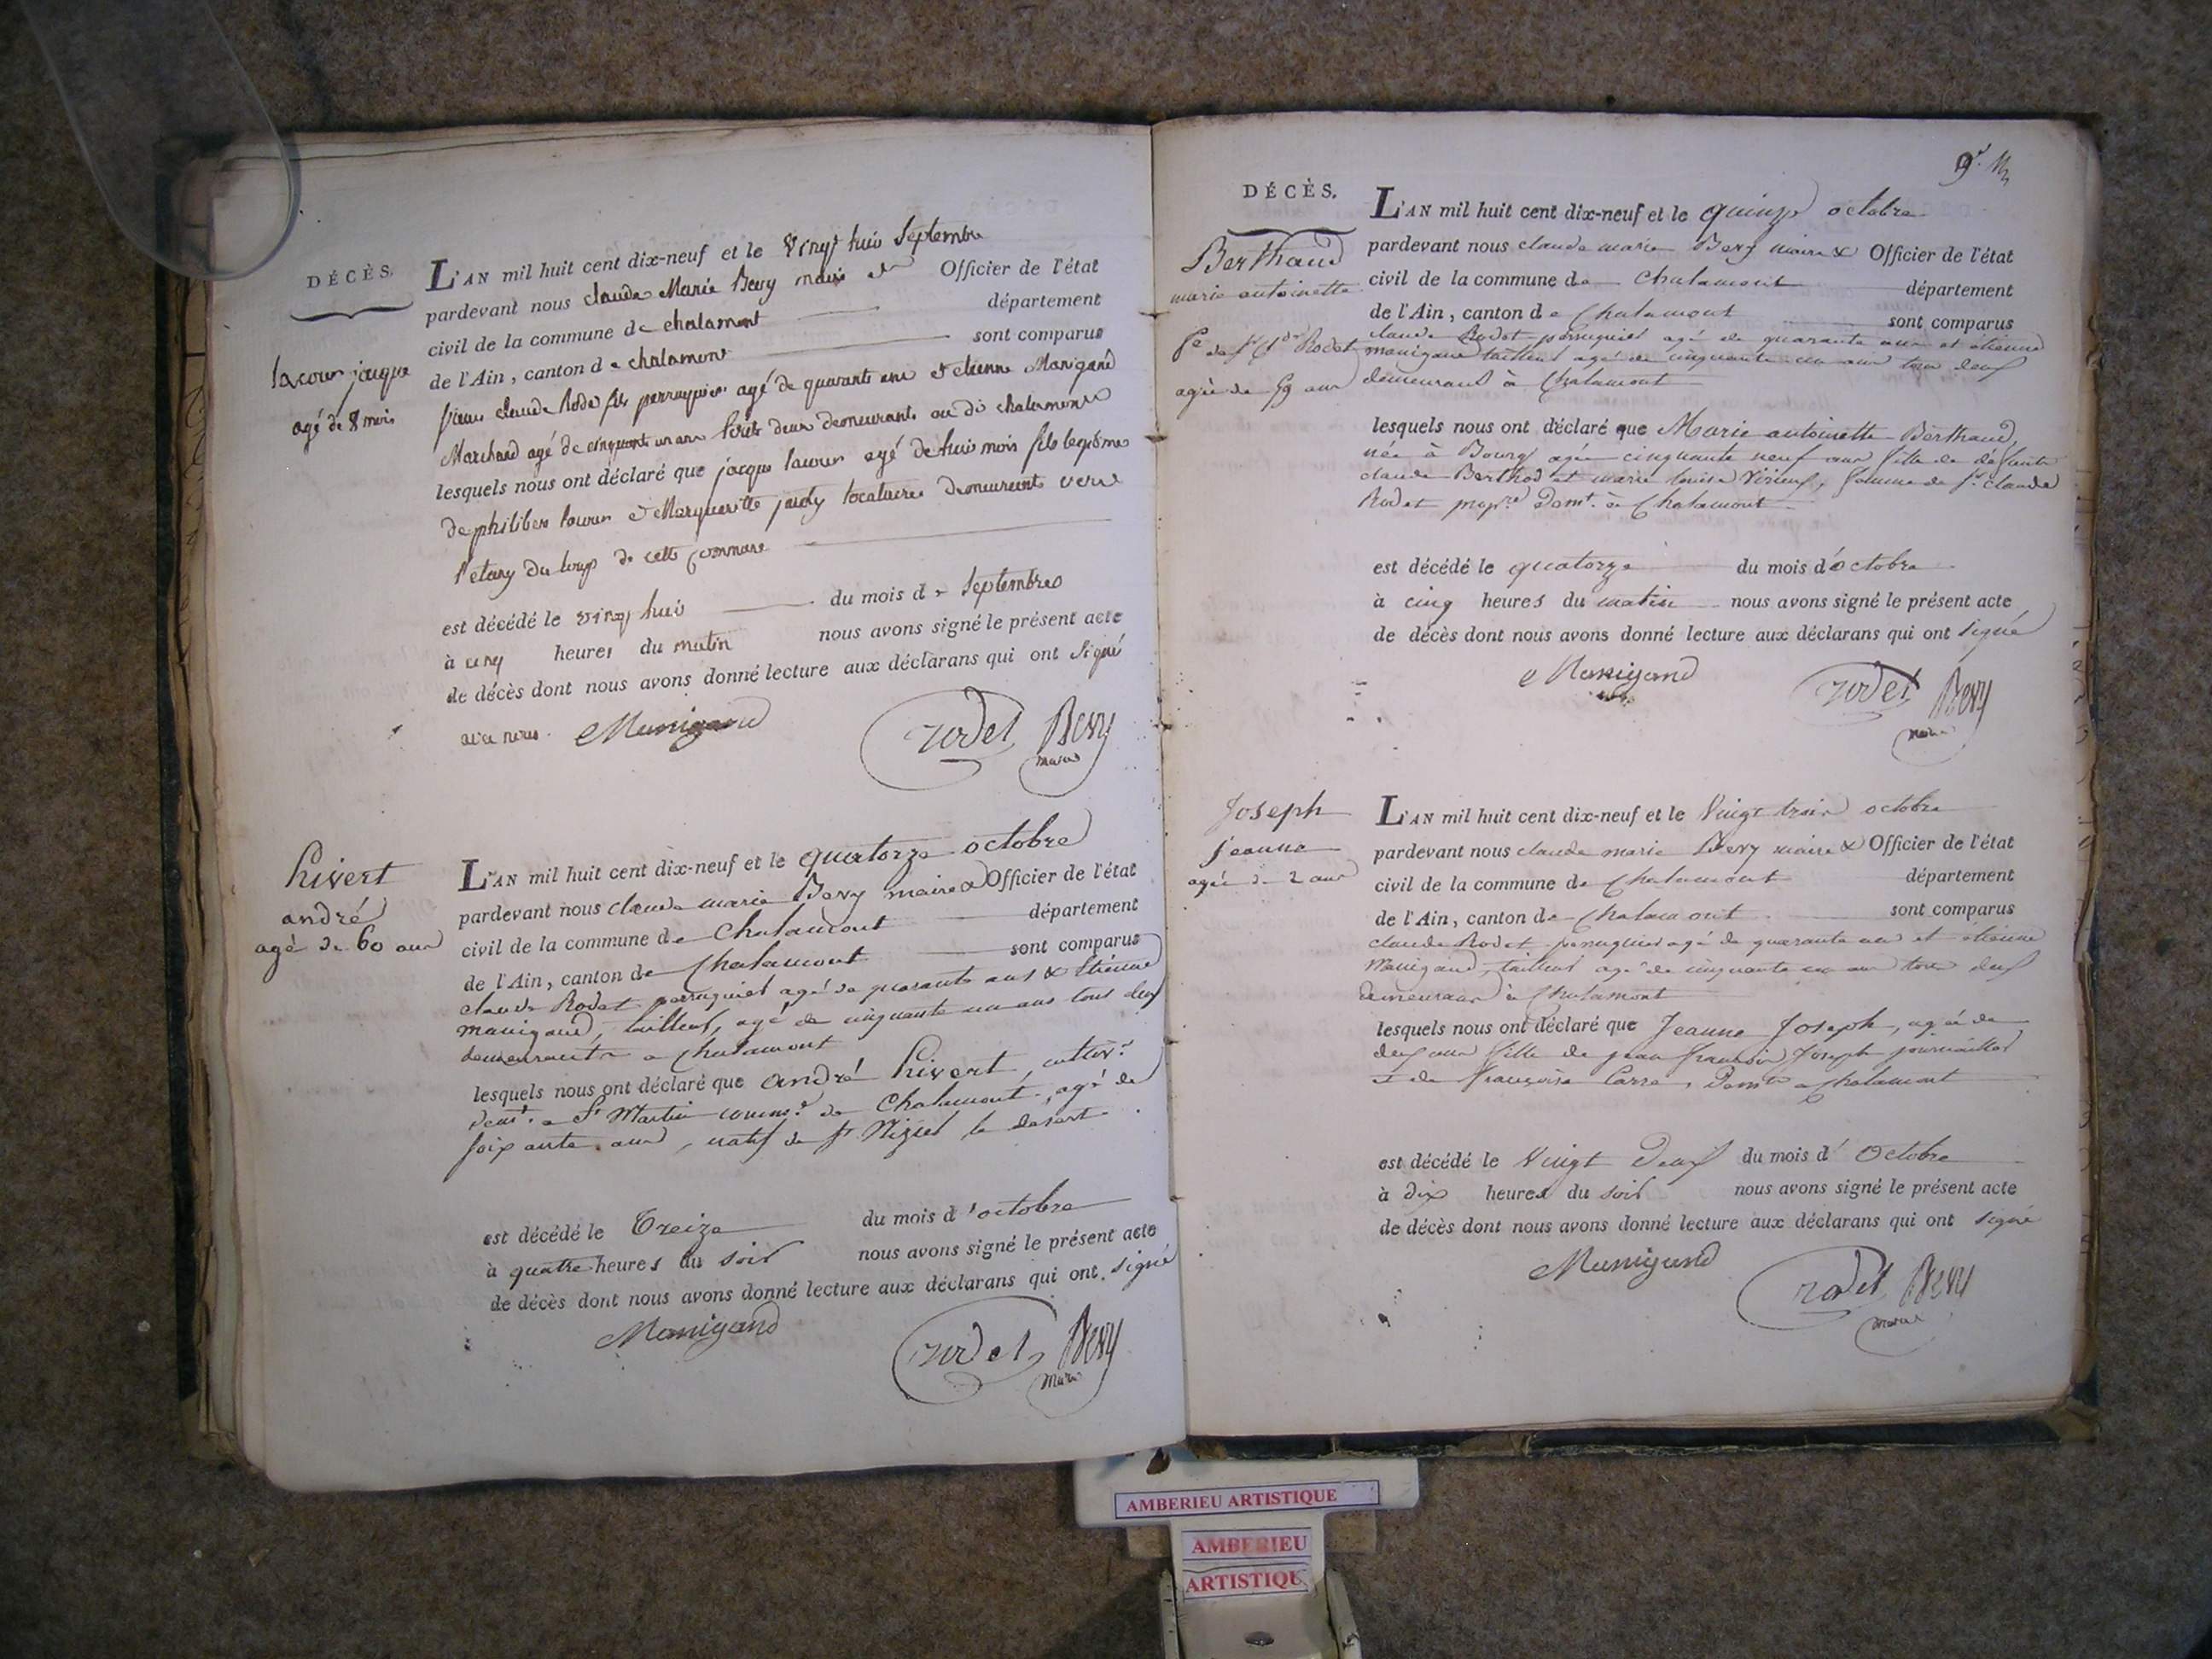 DÉCÈS.
L'AN mil huit cent dix-neuf et le vingt huit Septembre
pardevant nous claude Marie Bevy maire et Officier de l'état
civil de la commune de chalamont département
de l'Ain, canton de chalamont sont comparus
lacour jacque
agé de 8 mois
claude Rodet fils perruquier agé de quarante ans et etienne Manigand
Marchand agé de cinquante un ans deux demeurants au dit chalamont
lesquels nous ont déclaré que jacque lacour agé de huit mois fils legitime
de philibert lacour et Marguerite locataires demeurants vers
l'etang du loup de cette Commune
est décédé le vingt huit du mois de Septembre
à cinq heures du matin nous avons signé le présent acte
de décès dont nous avons donné lecture aux déclarans qui ont signé
avec nous. Manigand rodet Bevy
maire
hivert
andré
agé de 60 ans
L'AN mil huit cent dix-neuf et le quatorze octobre
pardevant nous claude marie Bevy maire & Officier de l'état
civil de la commune de Chalamont département
de l'Ain, canton de Chalamont sont comparus
claude Rodet perruquier agé de quarante ans & Etienne
manigand, tailleur, agé de cinquante un ans tous deux
demeurants a chalamont
lesquels nous ont déclaré que andré hivert, cultiv.r
dem.t a St Martin comm.e de Chalamont, agé de
soixante ans, natif de St Nizier le desert.
est décédé le Treize du mois d'octobre
à quatre heures du soir nous avons signé le présent acte
de décès dont nous avons donné lecture aux déclarans qui ont signé
Manigand rodet Bevy
maire
9.
DÉCÈS.
L'AN mil huit cent dix-neuf et le quinze octobre
Berthaud
marie antoinette
fe de St Cl.de Rodet
agée de 59 ans
pardevant nous claude marie Bevy maire & Officier de l'état
civil de la commune de Chalamont département
de l'Ain, canton de Chalamont sont comparus
claude Rodet perruquier agé de quarante ans et etienne
manigand tailleur agé de cinquante un ans tous deux
demeurant à Chalamont
lesquels nous ont déclaré que Marie antoinette Berthaud,
née à Bourg agée cinquante neuf ans fille de défunts
claude Berthod et marie louise femme de Sr claude
Rodet prop.re dem.t à Chalamont
est décédé le quatorze du mois d'octobre
à cinq heures du matin nous avons signé le présent acte
de décès dont nous avons donné lecture aux déclarans qui ont signé
Manigand rodet Bevy
maire
Joseph
jeanne
agée de 2 ans
L'AN mil huit cent dix-neuf et le Vingt trois octobre
pardevant nous claude marie Bevy maire & Officier de l'état
civil de la commune de Chalamont département
de l'Ain, canton de Chalamont sont comparus
claude Rodet perruquier agé de quarante ans et etienne
Manigand, tailleur agé de cinquante un ans tous deux
demeurans à Chalamont
lesquels nous ont déclaré que Jeanne Joseph, agée de
deux ans fille de jean françois Joseph journallier
et de françoise Carre, dem.ts a chalamont
est décédé le Vingt Deux du mois d'Octobre
à dix heures du soir nous avons signé le présent acte
de décès dont nous avons donné lecture aux déclarans qui ont signé
Manigand rodet Bevy
maire
AMBERIEU ARTISTIQUE
AMBERIEU
ARTISTIQUE